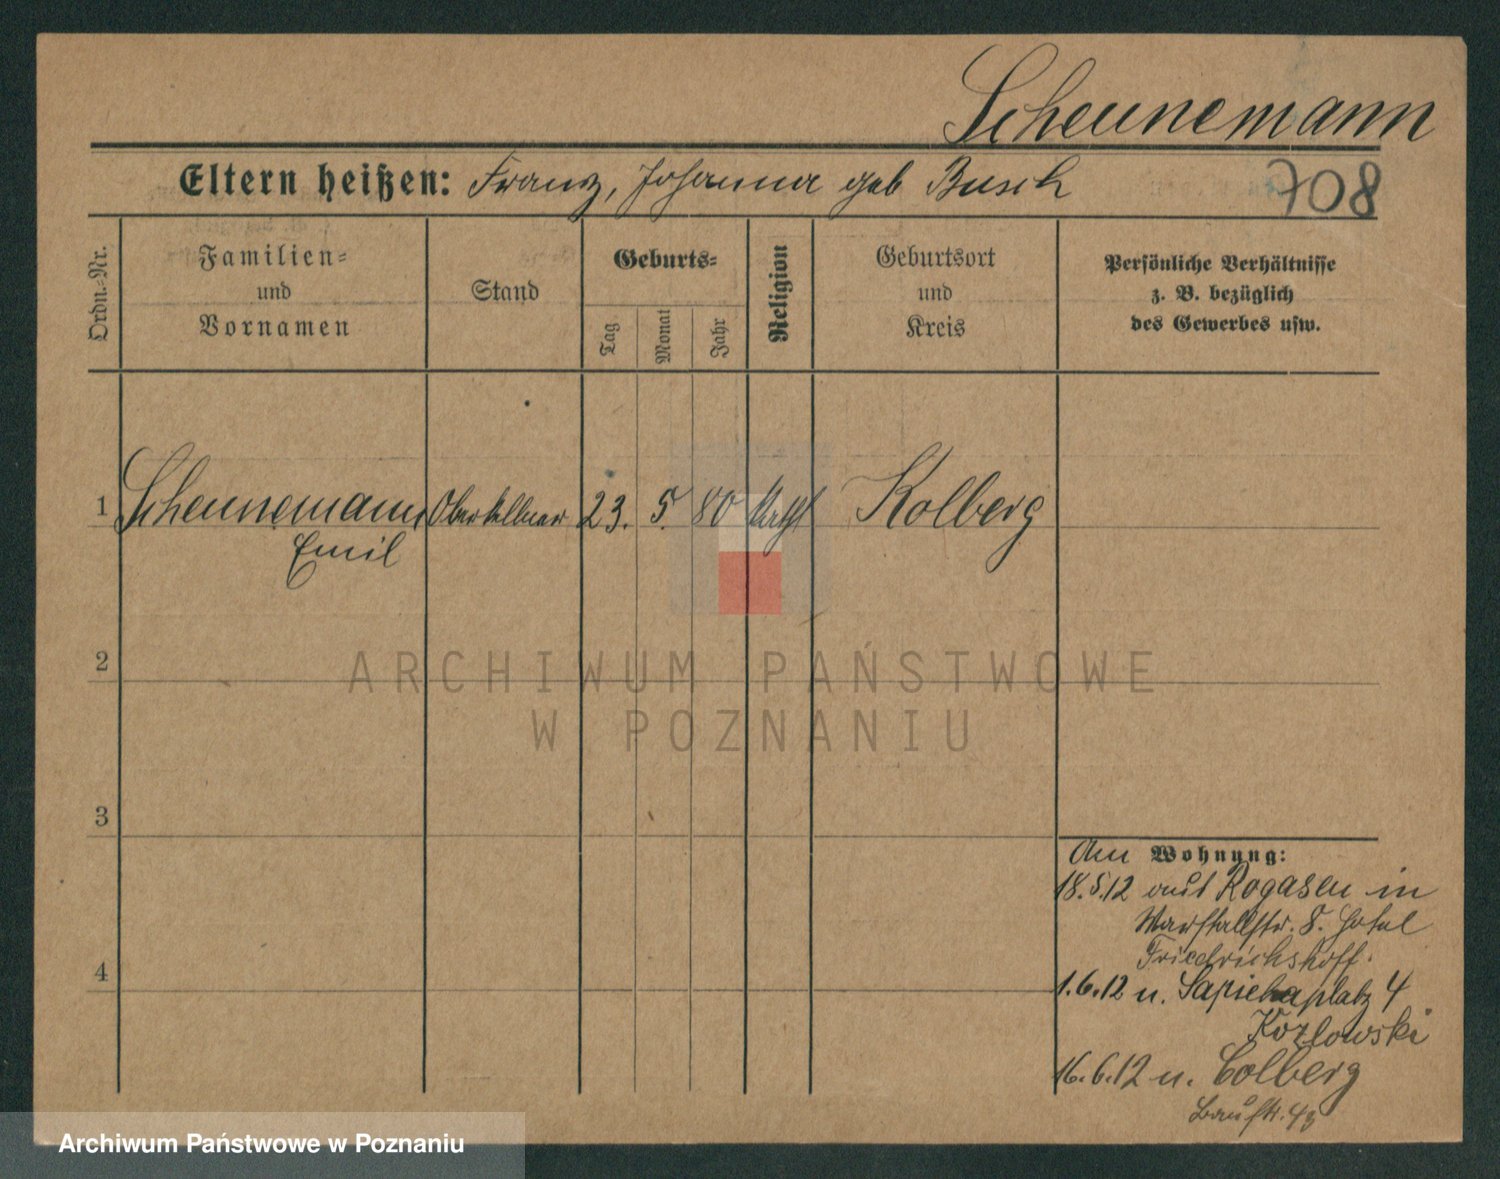 Scheunemann
Eltern heißen: Franz, Johanna geb Busch
708
Ordn.-Nr.
Familien-
und
Vornamen
Stand
Geburts-
Tag
Monat
Jahr
Religion
Geburtsort
und
Kreis
Persönliche Verhältnisse
z. B. bezüglich
des Gewerbes usw.
1 Scheunemann Oberkellner 23. 5. 80 Kath Kolberg
Emil
2
ARCHIWUM PAŃSTWOWE
W POZNANIU
3
4
Am Wohnung:
18.5.12 aus Rogasen in
Marstallstr. 8. Hotel
Friedrichshoff.
1.6.12 n. Sapiehaplatz 4
Kozlowski
16.6.12 n. Colberg
Baustr. 43
Archiwum Państwowe w Poznaniu